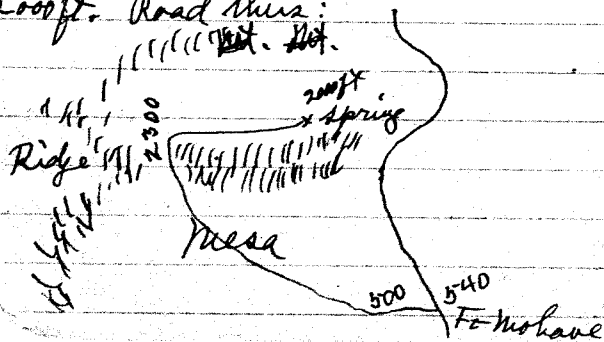 2000 ft. Road thus:
Mt. Mt.
2000 ft
x Spring
2300
Ridge
Mesa
500
540
Ft Mohave